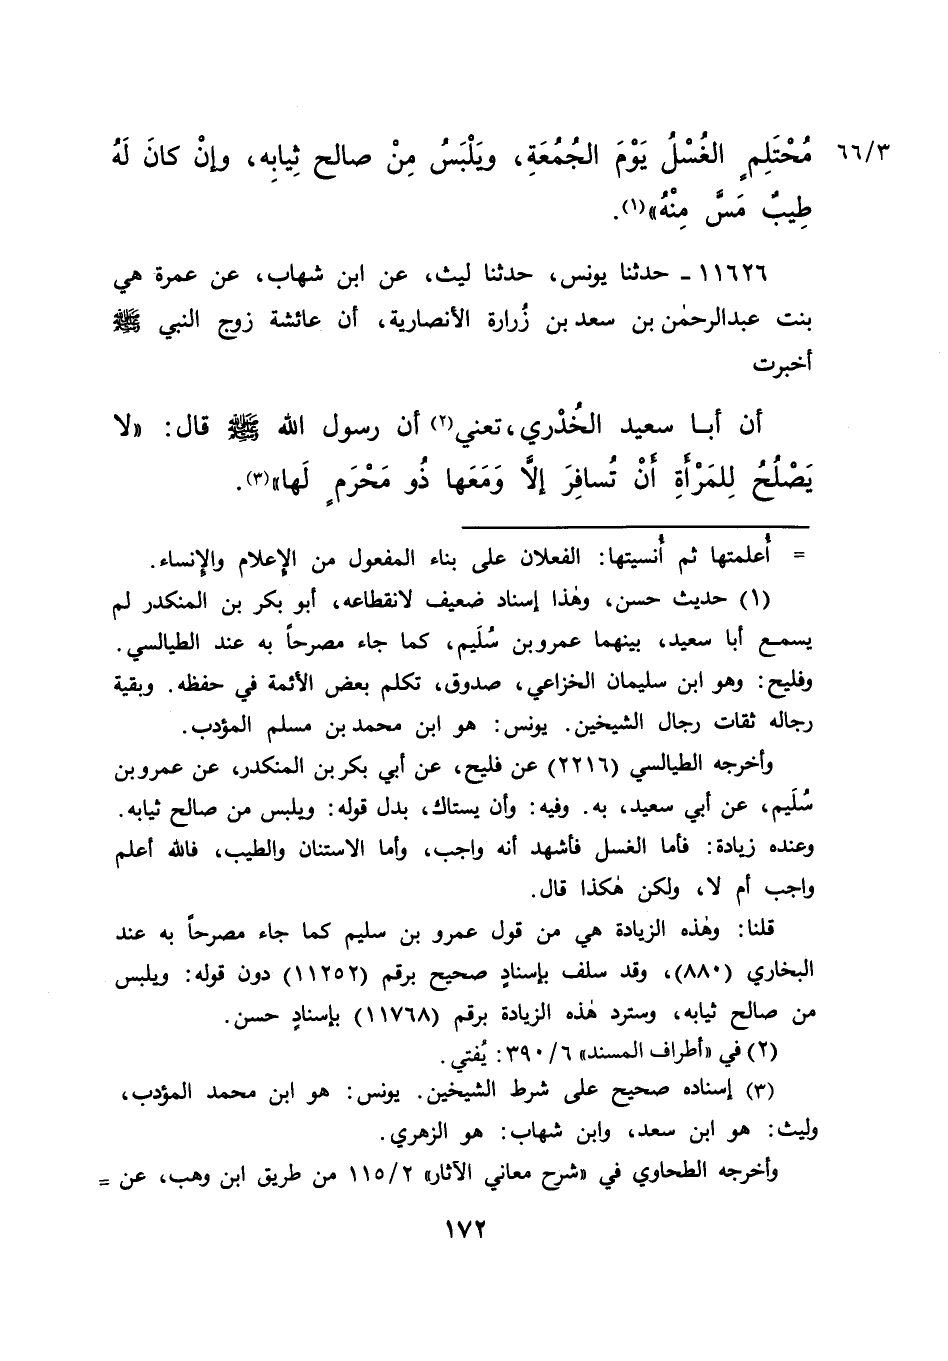 ٦٦/٣
مُحْتَلِمٍ الغُسْلُ يَوْمَ الجُمُعَةِ، ويَلْبَسُ مِنْ صالح ثِيابِه، وإنْ كانَ لَهُ
طِيبٌ مَسَّ مِنْهُ»(١).
١١٦٢٦ - حدثنا يونس، حدثنا ليث، عن ابن شهاب، عن عمرة هي
بنت عبدالرحمٰن بن سعد بن زُرارة الأنصارية، أن عائشة زوج النبي ﷺ
أخبرت
أن أبا سعيد الخُدْري، تعني(٢) أن رسول الله ﷺ قال: «لا
يَصْلُحُ لِلمَرْأَةِ أَنْ تُسافِرَ إلَّا وَمَعَها ذُو مَحْرَمٍ لَها»(٣).
= أُعلمتها ثم أُنسيتها: الفعلان على بناء المفعول من الإعلام والإنساء.
(١) حديث حسن، وهٰذا إسناد ضعيف لانقطاعه، أبو بكر بن المنكدر لم
يسمع أبا سعيد، بينهما عمرو بن سُلَيم، كما جاء مصرحاً به عند الطيالسي.
وفليح: وهو ابن سليمان الخزاعي، صدوق، تكلم بعض الأئمة في حفظه. وبقية
رجاله ثقات رجال الشيخين. يونس: هو ابن محمد بن مسلم المؤدب.
وأخرجه الطيالسي (٢٢١٦) عن فليح، عن أبي بكر بن المنكدر، عن عمرو بن
سُلَيم، عن أبي سعيد، به. وفيه: وأن يستاك، بدل قوله: ويلبس من صالح ثيابه.
وعنده زيادة: فأما الغسل فأشهد أنه واجب، وأما الاستنان والطيب، فالله أعلم
واجب أم لا، ولكن هٰكذا قال.
قلنا: وهٰذه الزيادة هي من قول عمرو بن سليم كما جاء مصرحاً به عند
البخاري (٨٨٠)، وقد سلف بإسنادٍ صحيح برقم (١١٢٥٢) دون قوله: ويلبس
من صالح ثيابه، وسترد هٰذه الزيادة برقم (١١٧٦٨) بإسنادٍ حسن.
(٢) في «أطراف المسند» ٣٩٠/٦: يُفتي.
(٣) إسناده صحيح على شرط الشيخين. يونس: هو ابن محمد المؤدب،
وليث: هو ابن سعد، وابن شهاب: هو الزهري.
وأخرجه الطحاوي في «شرح معاني الآثار» ١١٥/٢ من طريق ابن وهب، عن =
١٧٢